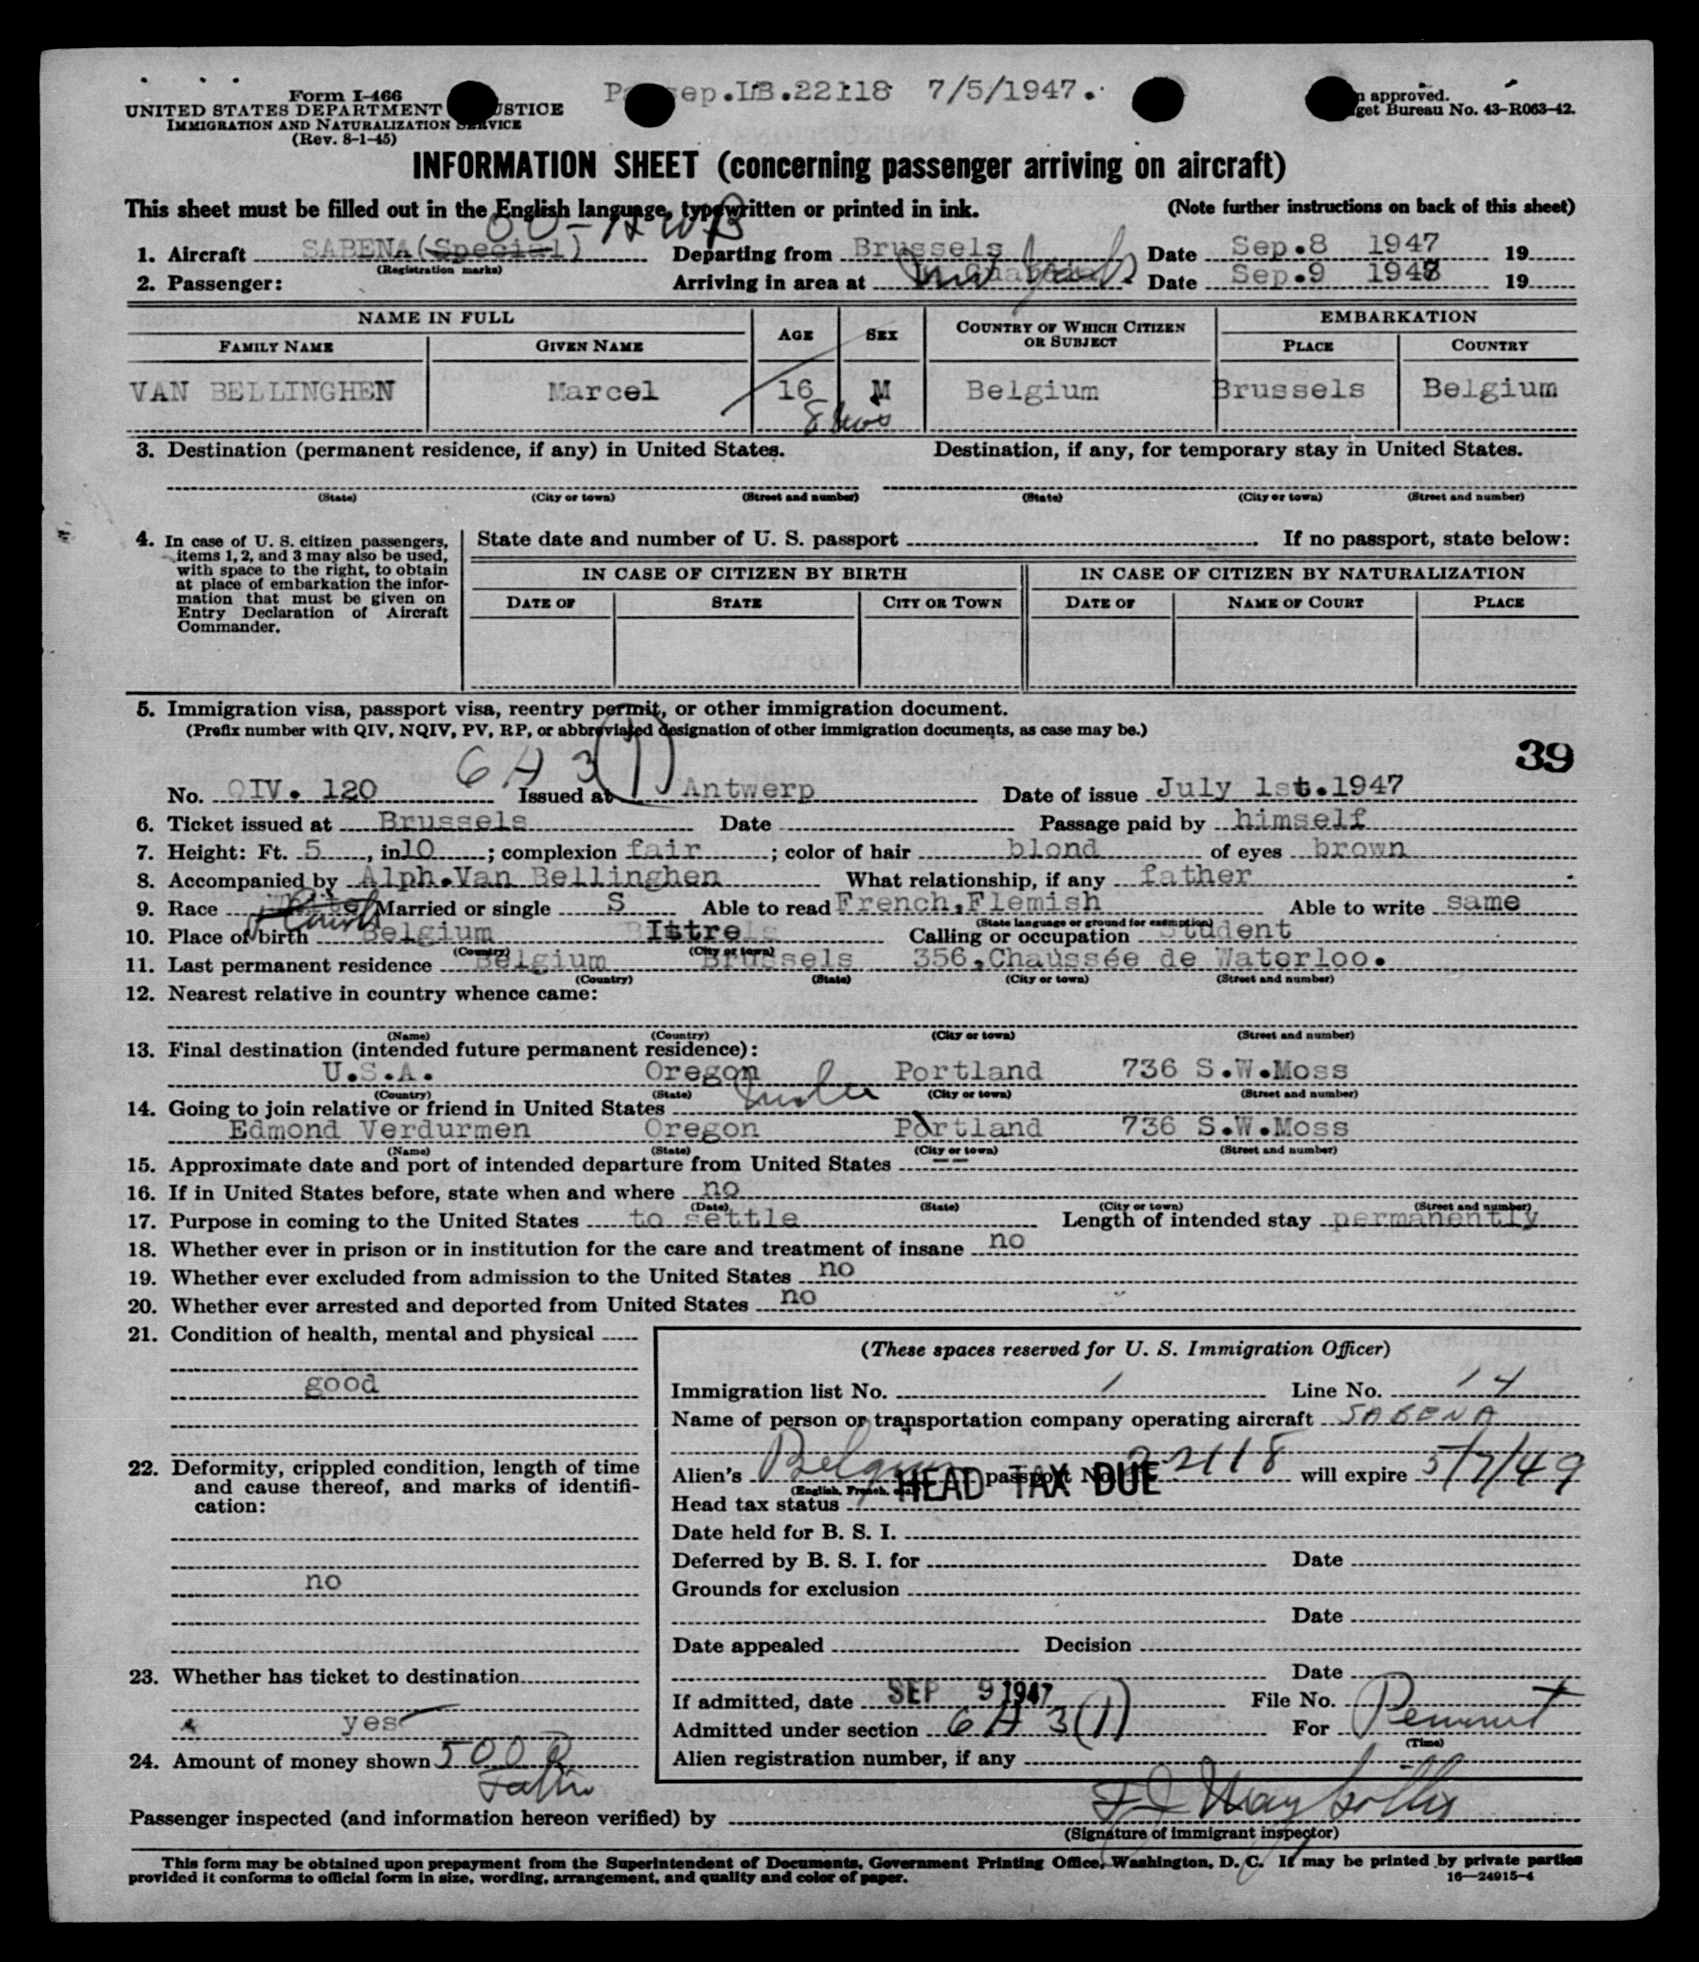 Form I-466
UNITED STATES DEPARTMENT JUSTICE
IMMIGRATION AND NATURALIZATION SERVICE
(Rev. 8-1-45)
sep.LB.22118 7/5/1947.
approved.
get Bureau No. 43-R063-42.
INFORMATION SHEET (concerning passenger arriving on aircraft)
This sheet must be filled out in the English language, typewritten or printed in ink.
(Note further instructions on back of this sheet)
OO-AWB
1. Aircraft SABENA(Special) Departing from Brussels Date Sep.8 1947 19
(Registration marks)
2. Passenger: Arriving in area at New York Date Sep.9 1947 19
NAME IN FULL AGE SEX COUNTRY OF WHICH CITIZEN OR SUBJECT EMBARKATION
FAMILY NAME GIVEN NAME PLACE COUNTRY
VAN BELLINGHEN Marcel 16 M Belgium Brussels Belgium
8 mos
3. Destination (permanent residence, if any) in United States. Destination, if any, for temporary stay in United States.
(State) (City or town) (Street and number) (State) (City or town) (Street and number)
4. In case of U. S. citizen passengers, items 1, 2, and 3 may also be used, with space to the right, to obtain at place of embarkation the information that must be given on Entry Declaration of Aircraft Commander.
State date and number of U. S. passport If no passport, state below:
IN CASE OF CITIZEN BY BIRTH IN CASE OF CITIZEN BY NATURALIZATION
DATE OF STATE CITY OR TOWN DATE OF NAME OF COURT PLACE
5. Immigration visa, passport visa, reentry permit, or other immigration document.
(Prefix number with QIV, NQIV, PV, RP, or abbreviated designation of other immigration documents, as case may be.)
39
6 A 3(1)
No. QIV. 120 Issued at Antwerp Date of issue July 1st.1947
6. Ticket issued at Brussels Date Passage paid by himself
7. Height: Ft. 5, in 10; complexion fair; color of hair blond of eyes brown
8. Accompanied by Alph.Van Bellinghen What relationship, if any father
9. Race Married or single S Able to read French,Flemish Able to write same
(State language or ground for exemption)
10. Place of birth Belgium Ittre Calling or occupation Student
(Country) (City or town)
11. Last permanent residence Belgium Brussels 356,Chaussée de Waterloo.
(Country) (State) (City or town) (Street and number)
12. Nearest relative in country whence came:
(Name) (Country) (City or town) (Street and number)
13. Final destination (intended future permanent residence):
U.S.A. Oregon Portland 736 S.W.Moss
(Country) (State) (City or town) (Street and number)
14. Going to join relative or friend in United States Uncle
Edmond Verdurmen Oregon Portland 736 S.W.Moss
(Name) (State) (City or town) (Street and number)
15. Approximate date and port of intended departure from United States --
16. If in United States before, state when and where no
(Date) (State) (City or town) (Street and number)
17. Purpose in coming to the United States to settle Length of intended stay permanently
18. Whether ever in prison or in institution for the care and treatment of insane no
19. Whether ever excluded from admission to the United States no
20. Whether ever arrested and deported from United States no
21. Condition of health, mental and physical
good
22. Deformity, crippled condition, length of time and cause thereof, and marks of identification:
no
23. Whether has ticket to destination
yes
24. Amount of money shown 500
Father
(These spaces reserved for U. S. Immigration Officer)
Immigration list No. 1 Line No. 14
Name of person or transportation company operating aircraft SABENA
Alien's Belgium passport No. 22118 will expire 5/7/49
(English, French,
HEAD TAX DUE
Head tax status
Date held for B. S. I.
Deferred by B. S. I. for Date
Grounds for exclusion
Date
Date appealed Decision
Date
If admitted, date SEP 9 1947 File No.
Admitted under section 6 A 3(1) For Permt
(Time)
Alien registration number, if any
Passenger inspected (and information hereon verified) by
(Signature of immigrant inspector)
This form may be obtained upon prepayment from the Superintendent of Documents, Government Printing Office, Washington, D. C. It may be printed by private parties
provided it conforms to official form in size, wording, arrangement, and quality and color of paper.
16—24915-4